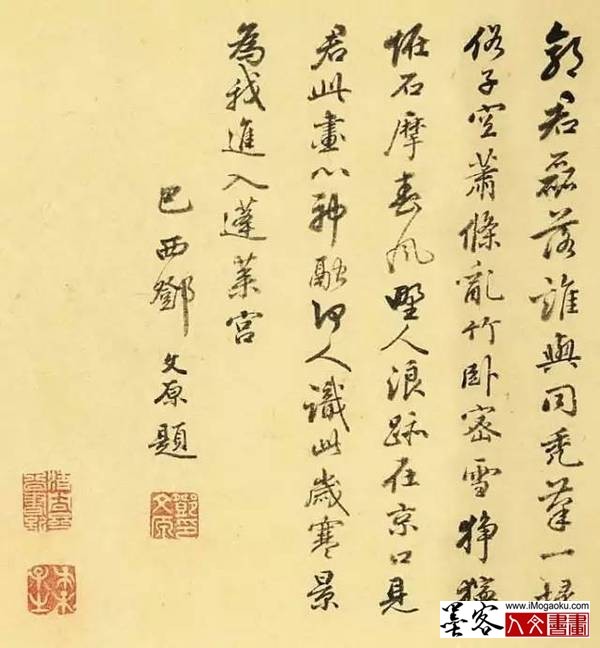 郭君磊落誰與同禿筆一掃
俗子空蕭條亂竹卧密雪狰獰
恠石摩春風野人浪跡在京口見
君此畫心神融何人識此歲寒景
為我進入蓬萊宮
巴西鄧文原題
墨客
www.iMogaoku.com
人文書畫